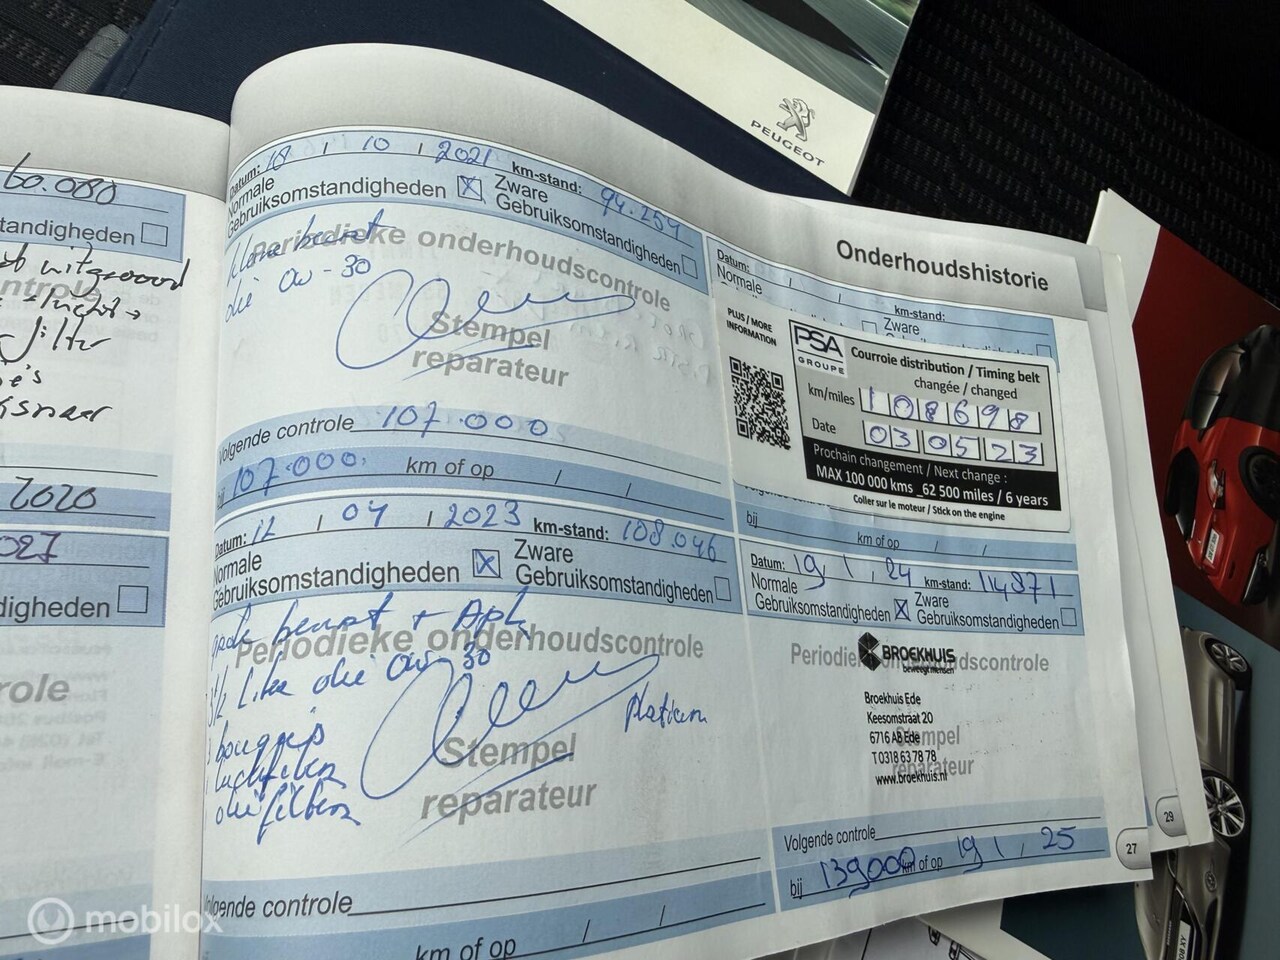 PEUGEOT
60.080
standigheden
uitgevoerd
filter
2020
027
digheden
role
Datum: 18 / 10 / 2021 km-stand: 94.254
Normale
Gebruiksomstandigheden
Zware
Gebruiksomstandigheden
kleine beurt
olie 0W-30
Periodieke onderhoudscontrole
Stempel
reparateur
Volgende controle 107.000
bij 107.000. km of op / /
Datum: 12 / 04 / 2023 km-stand: 108.046
Normale
Gebruiksomstandigheden
Zware
Gebruiksomstandigheden
grote beurt + Apk
Periodieke onderhoudscontrole
3 1/2 Liter olie 0W 30
3 bougies Platium
luchtfilter
oliefilter
Stempel
reparateur
Volgende controle
km of op / /
Onderhoudshistorie
Datum: / / km-stand:
Normale
Zware
PLUS / MORE
INFORMATION
PSA
GROUPE
Courroie distribution / Timing belt
changée / changed
km/miles 108698
Date 03 05 23
Prochain changement / Next change :
MAX 100 000 kms _62 500 miles / 6 years
Coller sur le moteur / Stick on the engine
bij km of op / /
Datum: 19 / 1 / 24 km-stand: 114871
Normale
Gebruiksomstandigheden
Zware
Gebruiksomstandigheden
Periodieke onderhoudscontrole
BROEKHUIS
beweegt mensen
Broekhuis Ede
Keesomstraat 20
6716 AB Ede
T 0318 63 78 78
www.broekhuis.nl
Stempel
reparateur
Volgende controle
bij 139000 km of op 19 / 1 / 25
27
29
mobilox